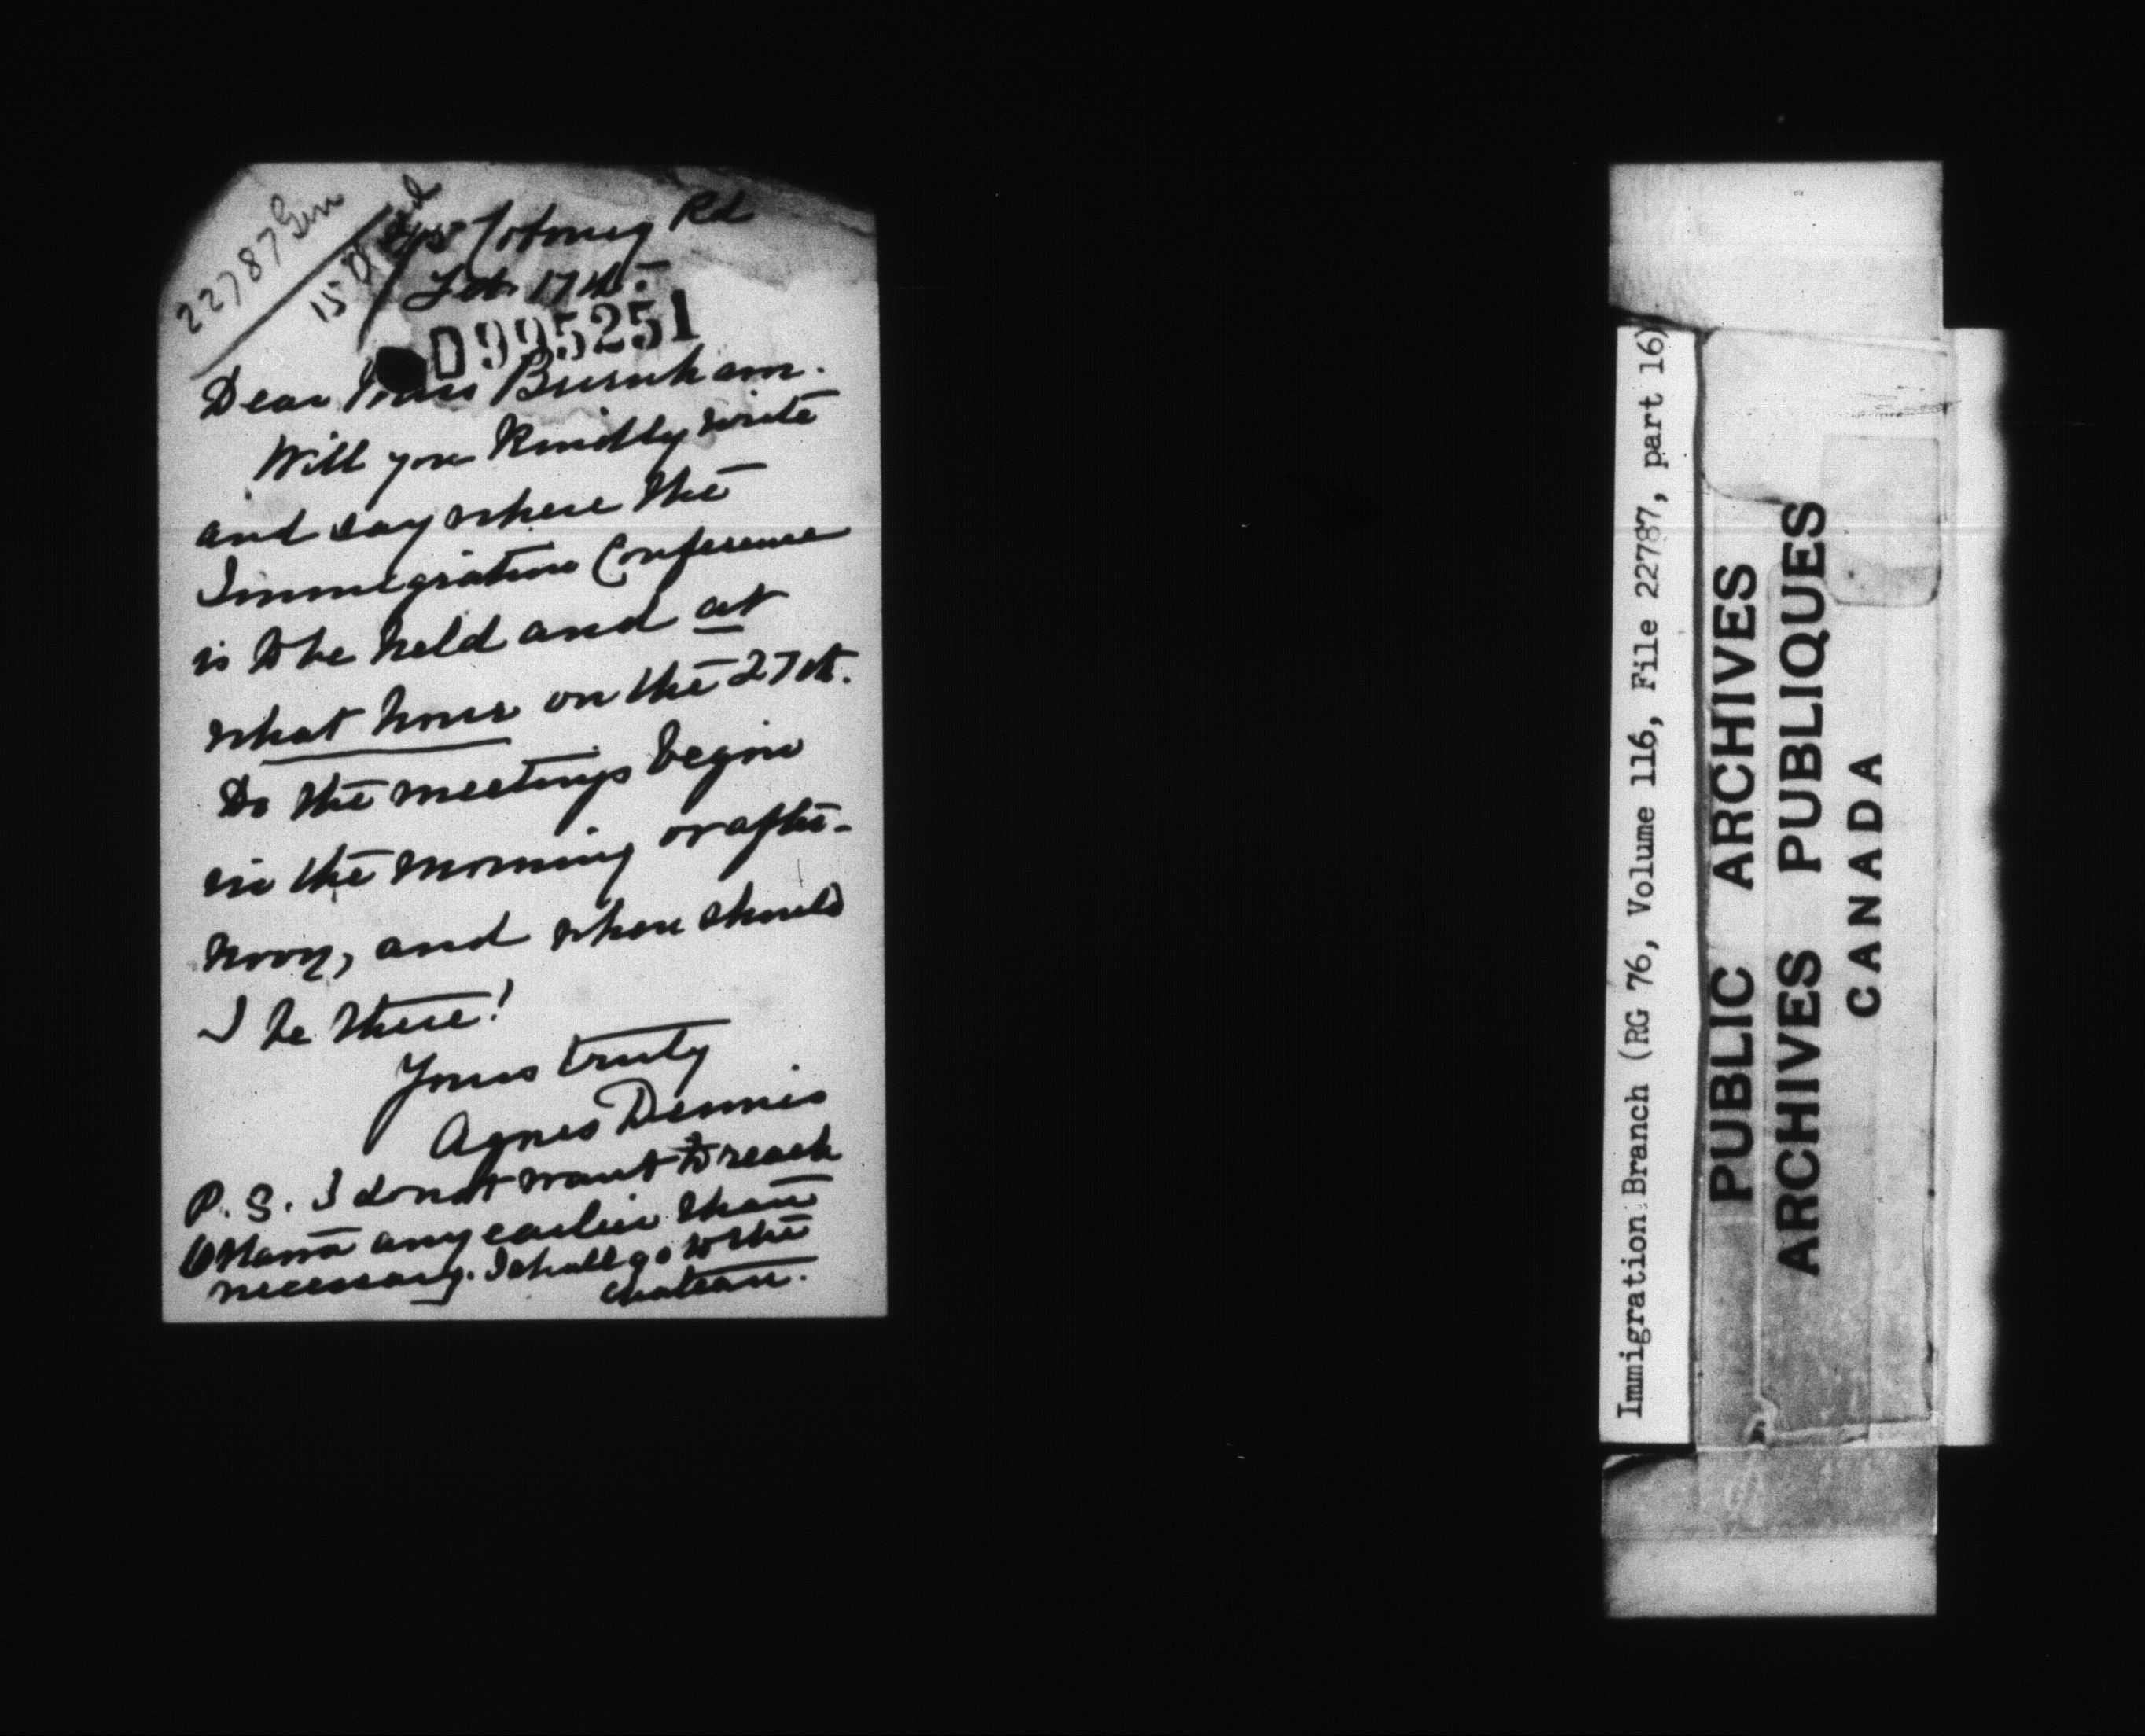 22787 Gen
15
Coburg Rd
Feb. 17th.
D995251
Dear Miss Burnham.
Will you kindly write
and say where the
Immigration Conference
is to be held and at
what hour on the 27th.
Do the meetings begin
in the morning or after-
noon, and when should
I be there!
Yours truly
Agnes Dennis
P. S. I do not want to reach
Ottawa any earlier than
necessary. I shall go to the
Chateau.
Immigration Branch (RG 76, Volume 116, File 22787, part 16)
PUBLIC ARCHIVES
ARCHIVES PUBLIQUES
CANADA